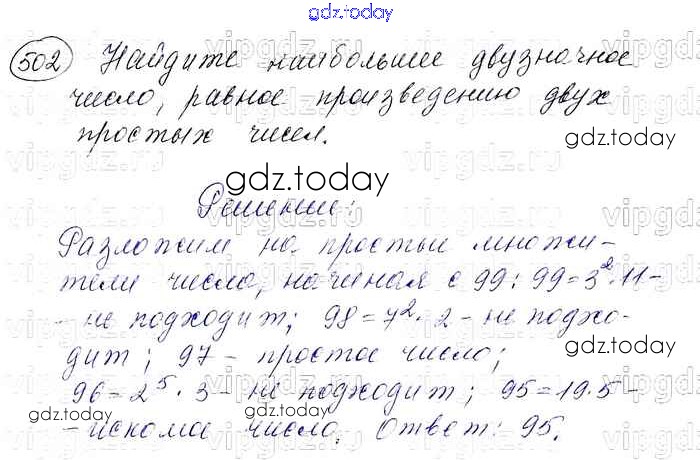 gdz.today
502 Найдите наибольшее двузначное
число, равное произведению двух
простых чисел.
gdz.today
gdz.today
Решение:
Разложим на простые множи-
тели число, начиная с 99: 99=3²·11-
- не подходит; 98=7²·2 - не подхо-
дит; 97 - простое число;
gdz.today
96=2⁵·3 - не подходит; 95=19·5-
gdz.today
gdz.today
- искомое число. Ответ: 95.